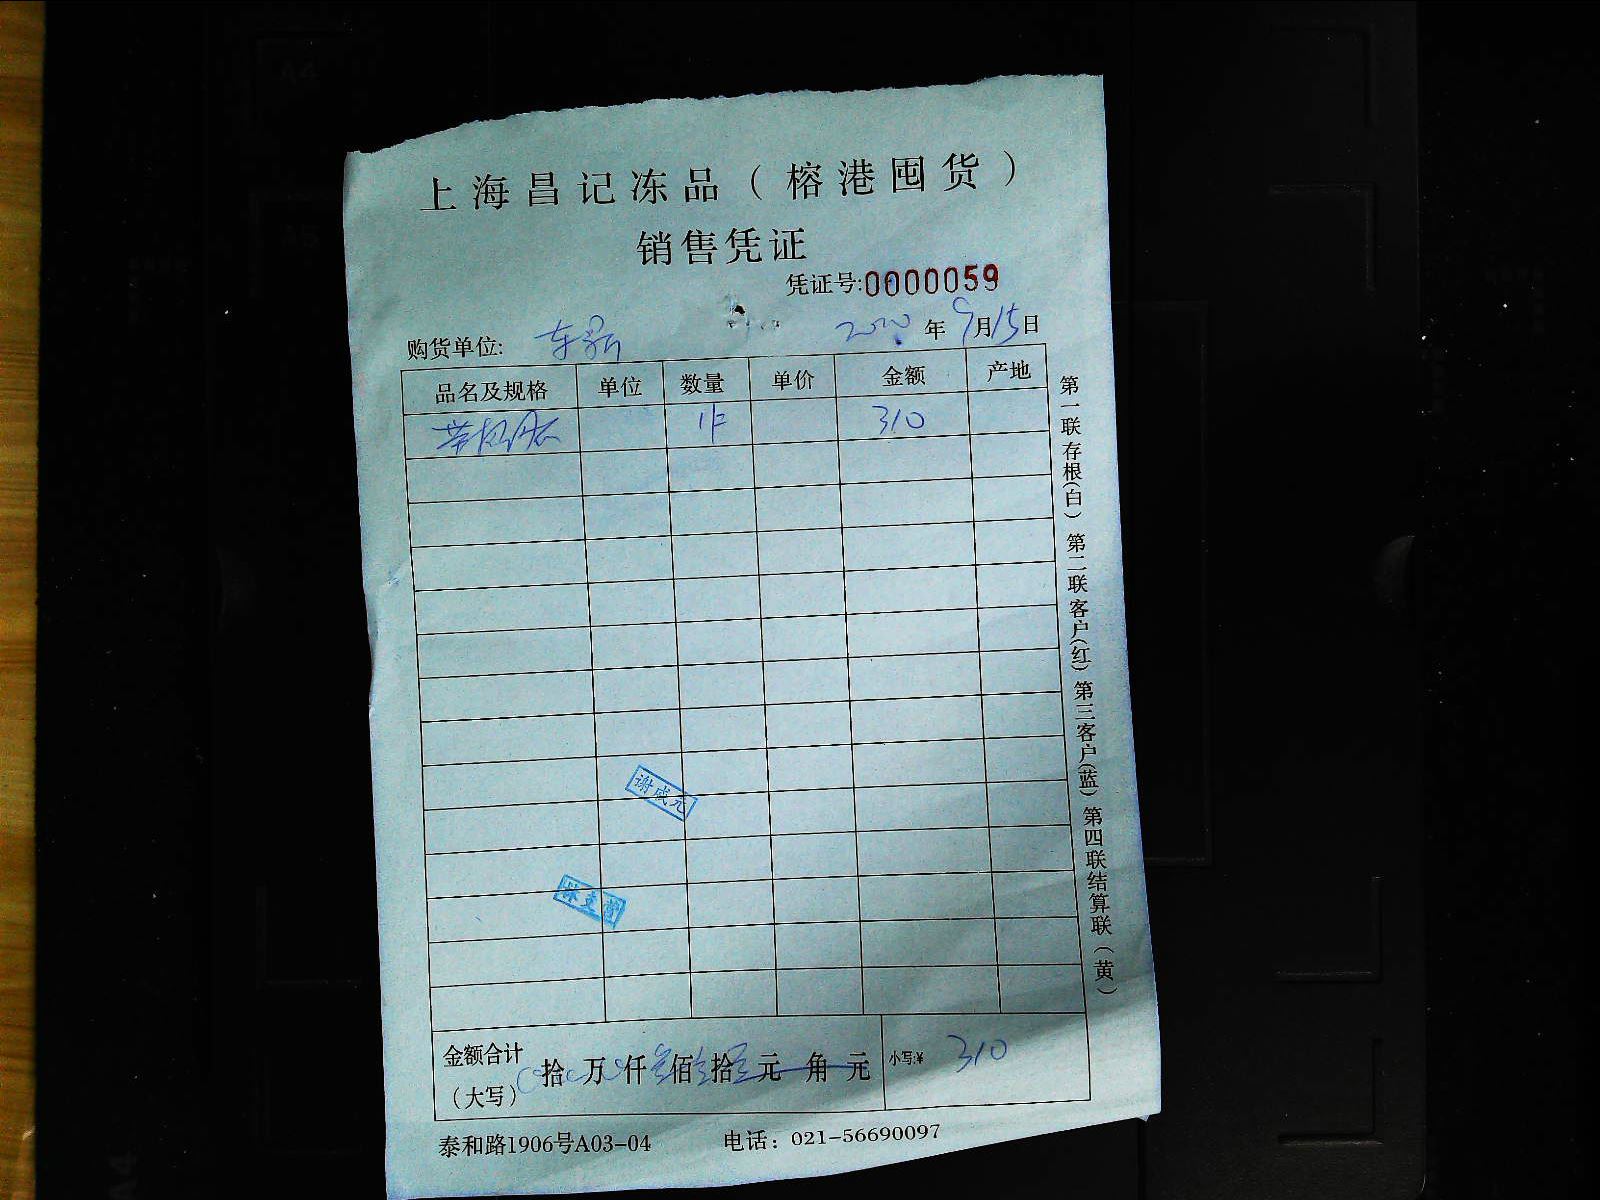 上海昌记冻品（榕港囤货）
销售凭证
凭证号:0000059
购货单位: 2020年9月15日
品名及规格 单位 数量 单价 金额 产地
1件 310
谢成元
金额合计（大写） 拾万仟佰拾元角元 小写:¥ 310
泰和路1906号A03-04 电话：021-56690097
第一联存根(白) 第二联客户(红) 第三客户(蓝) 第四联结算联(黄)